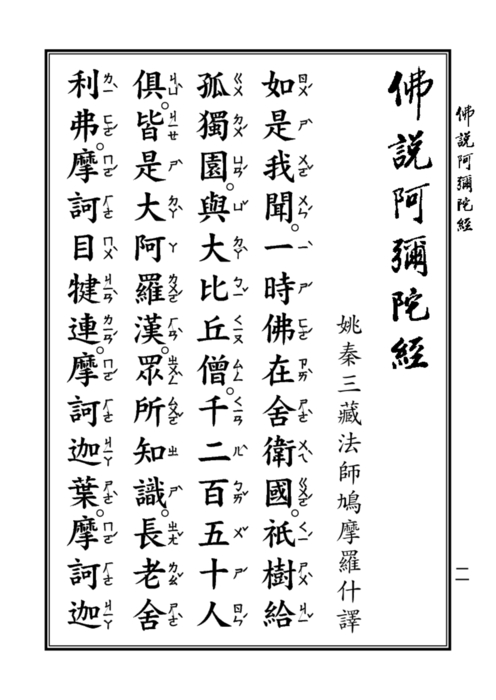 佛說阿彌陀經
二
佛說阿彌陀經
姚秦三藏法師鳩摩羅什譯
如是我聞。一時佛在舍衛國。祇樹給
孤獨園。與大比丘僧。千二百五十人
俱。皆是大阿羅漢。眾所知識。長老舍
利弗。摩訶目犍連。摩訶迦葉。摩訶迦